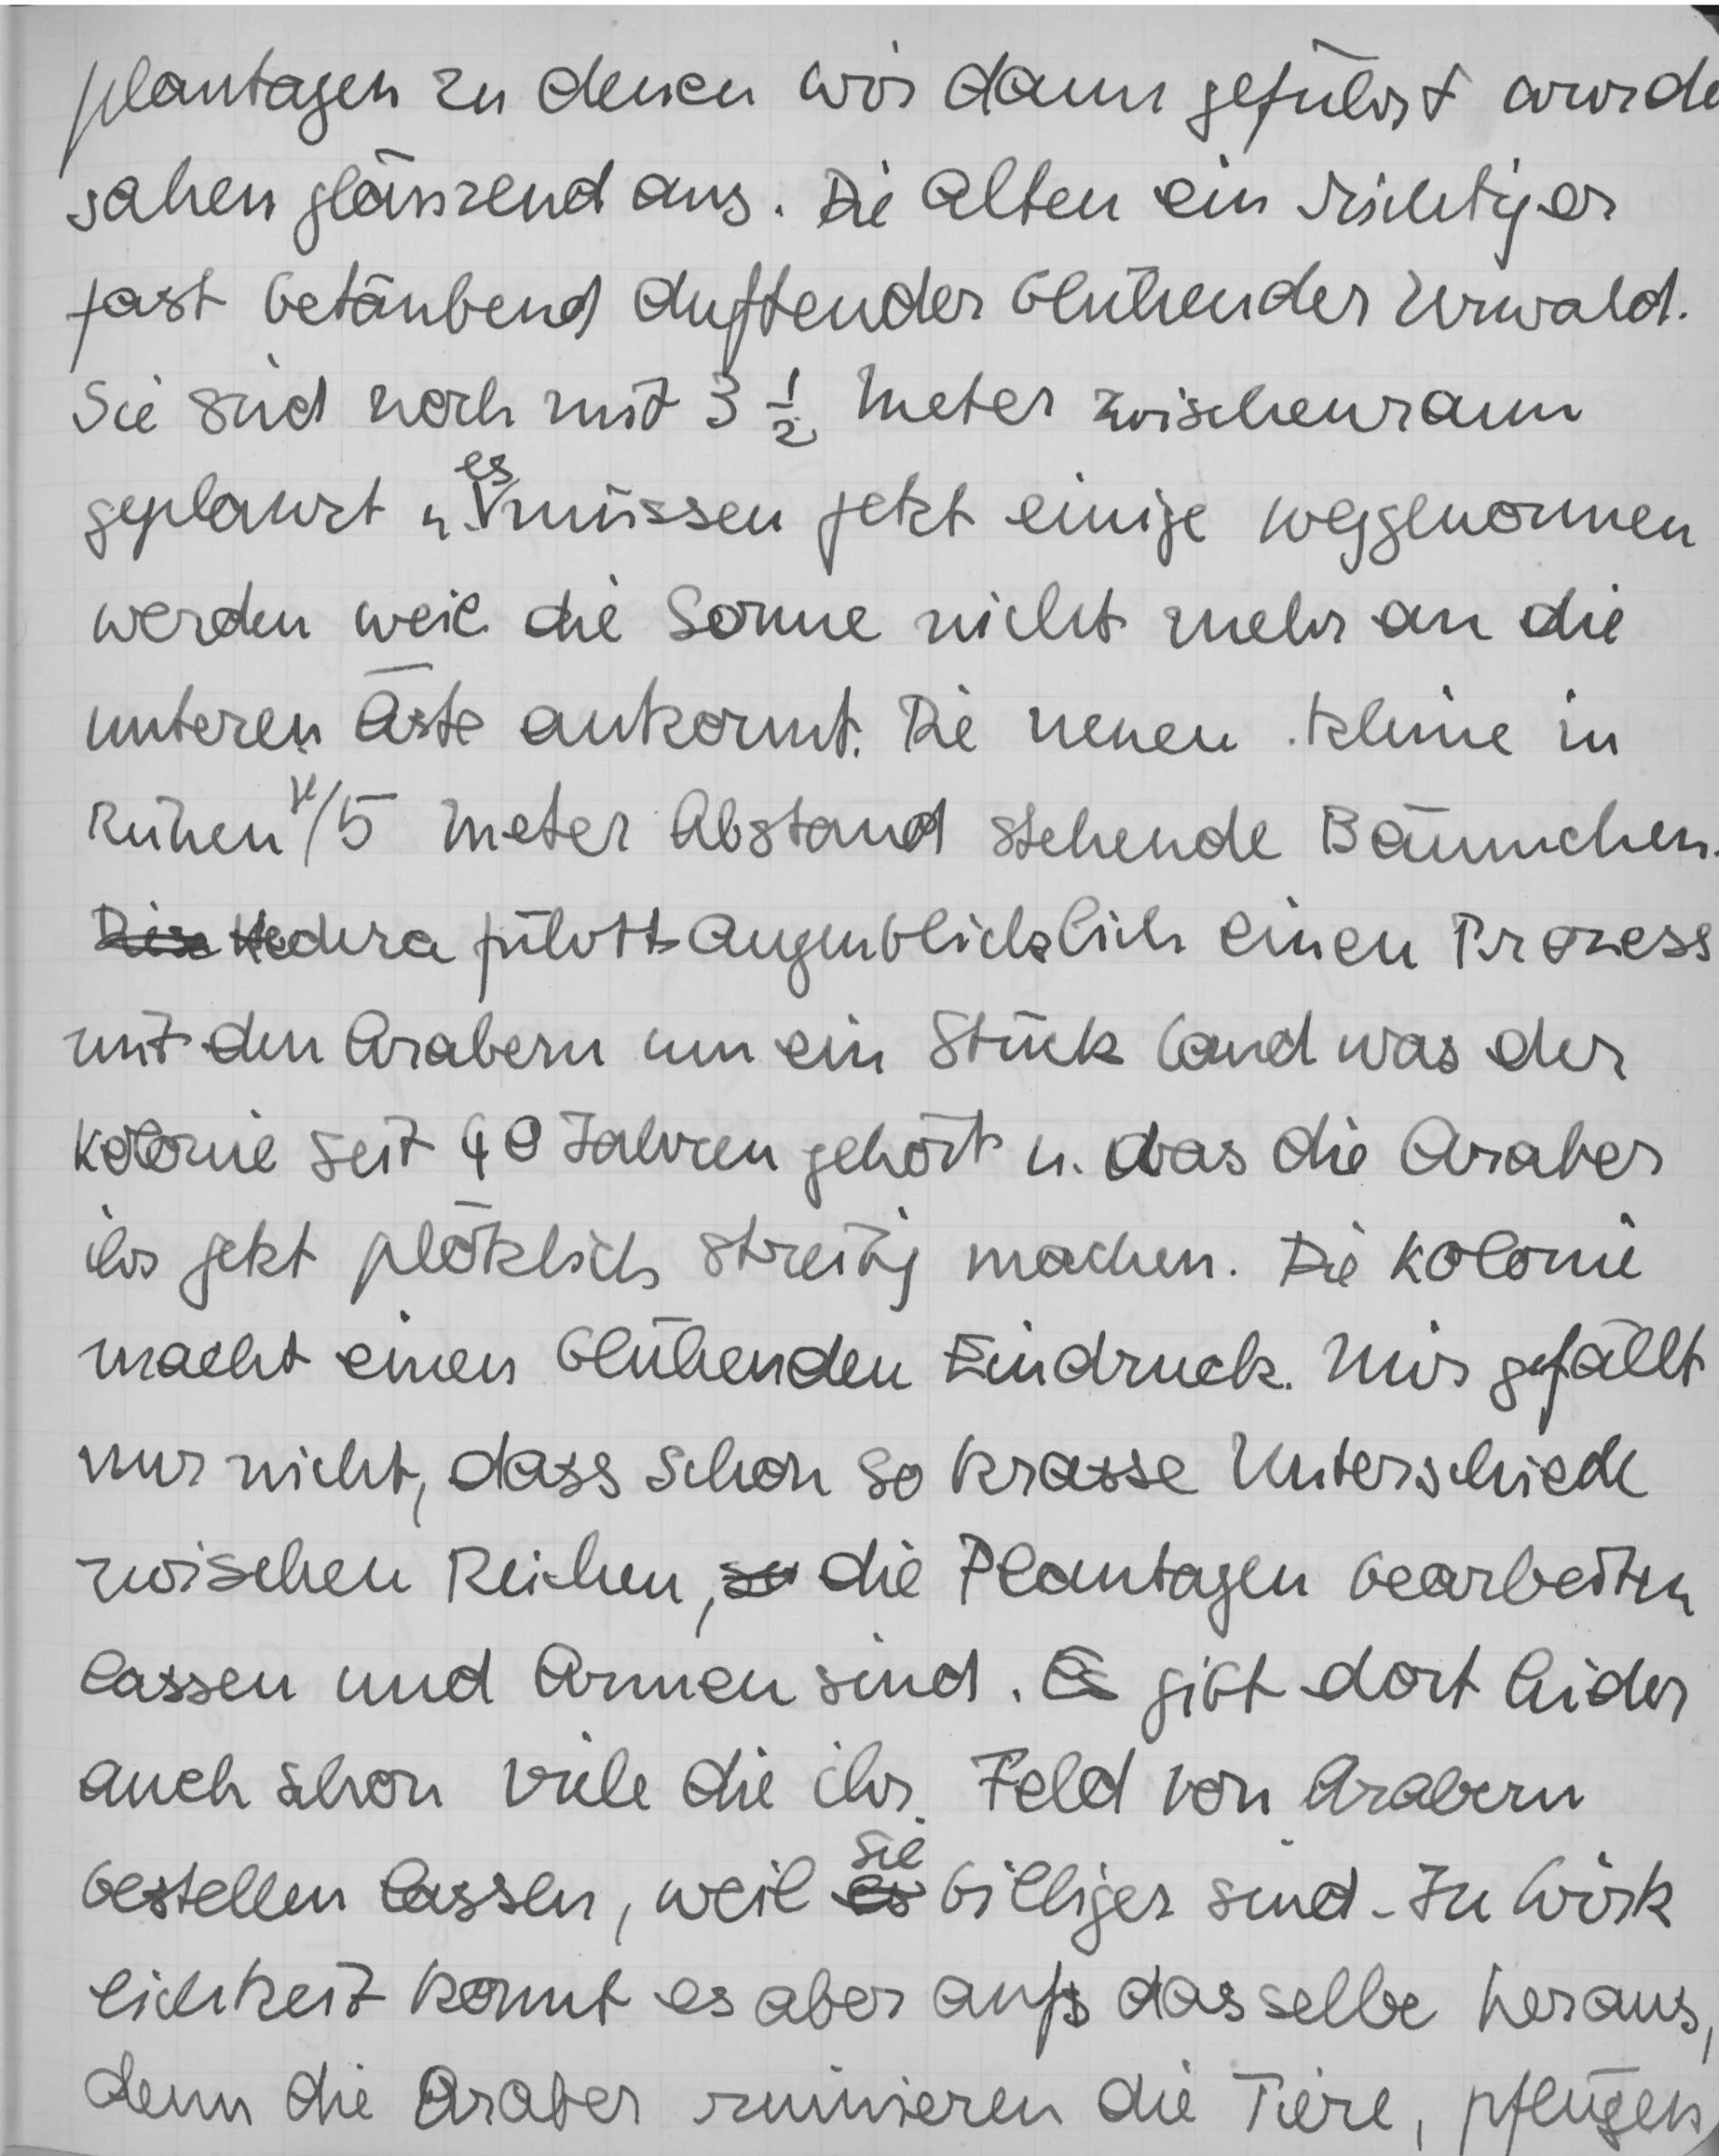 plantagen zu denen wir dann geführt wurde
sahen glänzend aus. Die Alten ein richtiger
fast betäubend duftender blühender Urwald.
Sie sind noch mit 3 1/2 Meter zwischenraum
geplanzt u. es müssen jetzt einige weggenommen
werden weil die Sonne nicht mehr an die
unteren Äste ankommt. Die neuen kleine in
Reihen 4/5 Meter Abstand stehende Bäumchen.
Die Hedera führt augenblicklich einen Prozess
mit den Arabern um ein Stück Land was der
Kolonie seit 40 Jahren gehört u. das die Araber
ihr jetzt plötzlich streitig machen. Die Kolonie
macht einen blühenden Eindruck. Mir gefällt
nur nicht, dass schon so krasse Unterschiede
zwischen Reichen, so die Plantagen bearbeiten
lassen und Armen sind. Es gibt dort leider
auch schon viele die ihr Feld von Arabern
bestellen lassen, weil es sie billiger sind. In Wirk
lichkeit kommt es aber aufs dasselbe heraus,
denn die Araber ruinieren die Tiere, pflügen